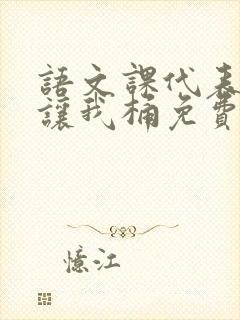 語文課代表
讓我桶免費
憶江